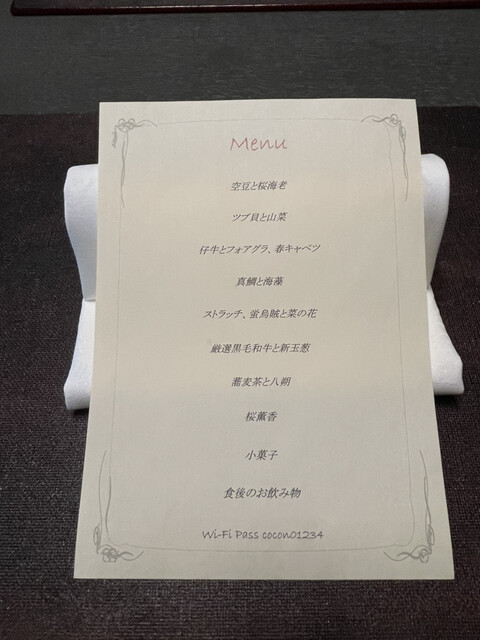 Menu
空豆と桜海老
ツブ貝と山菜
仔牛とフォアグラ、春キャベツ
真鯛と海藻
ストラッチ、蛍烏賊と菜の花
厳選黒毛和牛と新玉葱
蕎麦茶と八朔
桜薫香
小菓子
食後のお飲み物
Wi-Fi Pass cocon01234